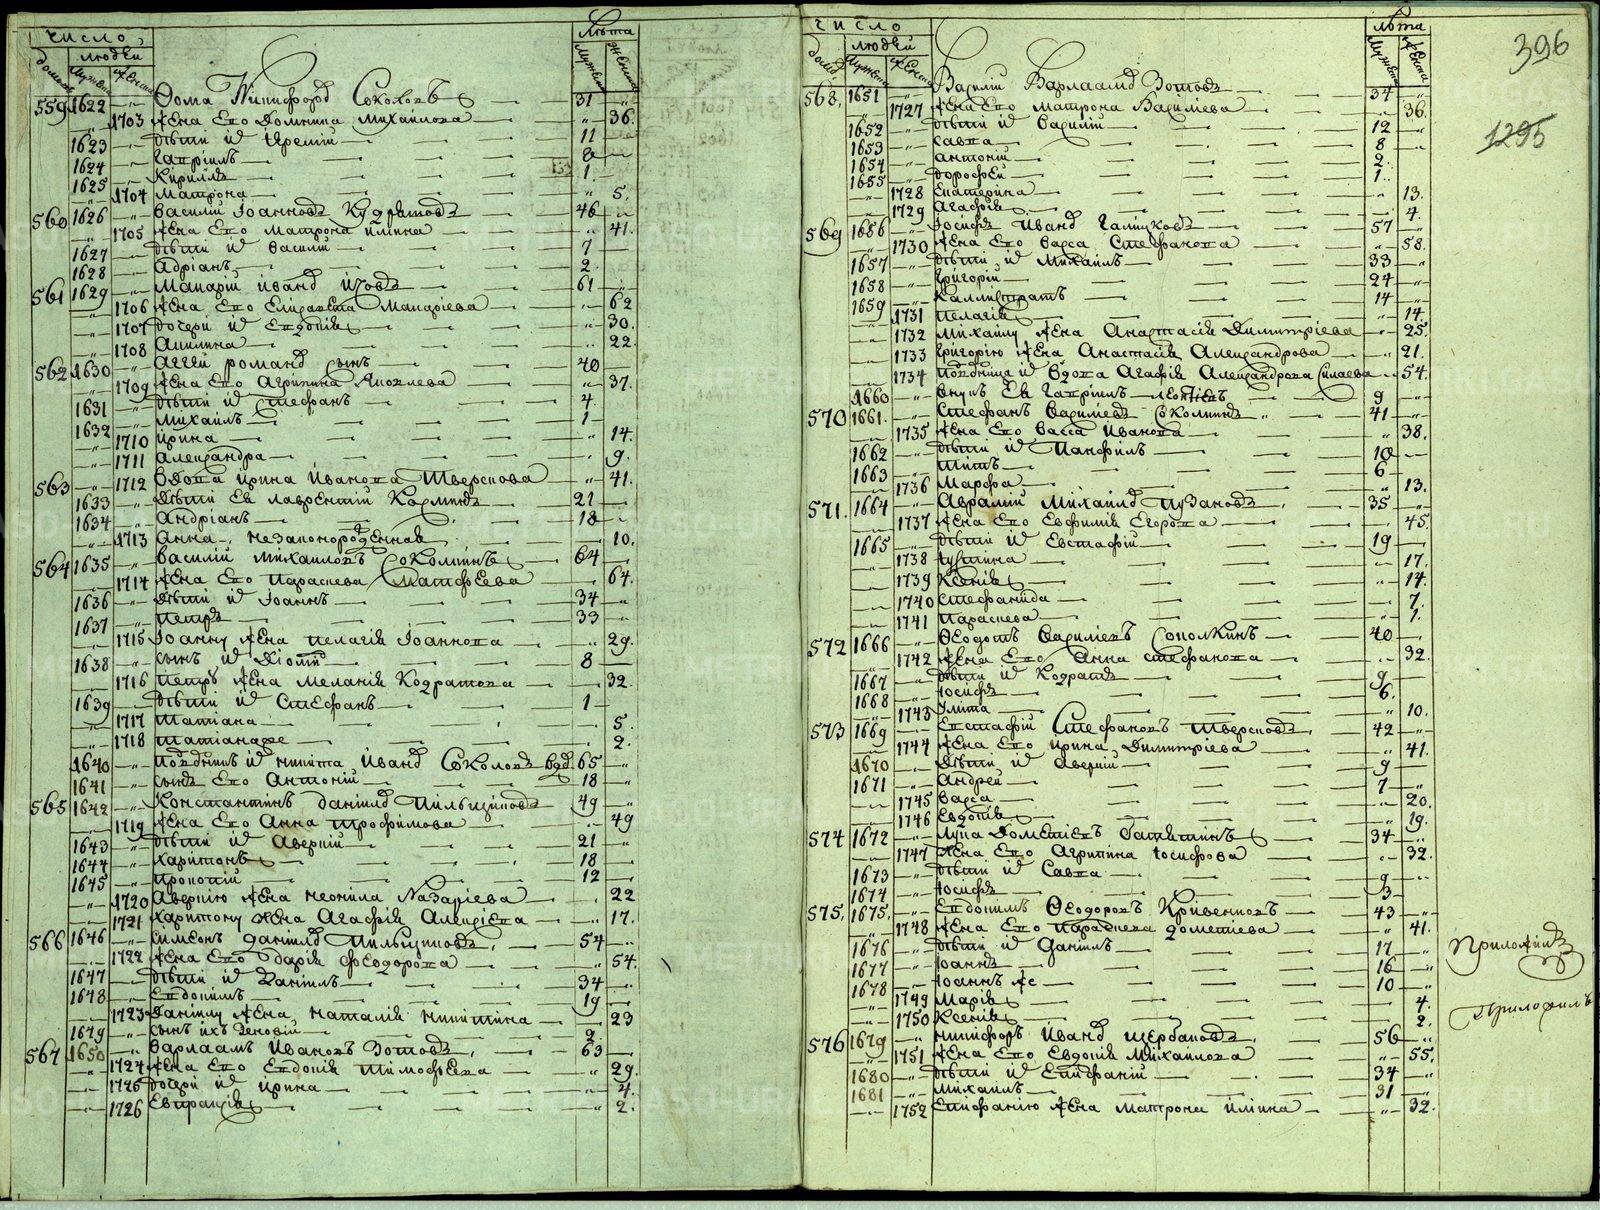 число лѣта
людей
домовъ мужеска женска мужеска женска
559 1622 Ѳома Никифоровъ Соколовъ 31
1703 жена его Домникиа Михайлова 36.
1623 дѣти их Иремій 11
1624 Гавріилъ 8
1625 Кириллъ 1.
1704 Матрона 5.
560 1626 Василій Іоанновъ Кудрѧтовъ 46
1705 жена его Матрона Илина 41.
1627 дѣти их Василій 7
1628 Адріанъ 2.
561 1629 Макарій Иванов 61
1706 жена его Елисавета Макаріева 62
1707 дочери их Евдокія 30.
1708 Акилина 22.
562 1630 Аггей романов сынъ 40
1709 жена его Агрипина Яковлева 37.
1631 дѣти их Стефанъ 4.
1632 Михаилъ 1
1710 Ирина 14.
1711 Александра 9.
563 1712 Вдова Ирина Иванова Тверскова 41.
1633 дѣти ея Лаврентій Козминъ 21
1634 Андріанъ 18
1713 Анна незаконорожденная 10.
564 1635 Василій Михаиловъ Соколкинъ 64
1714 жена его Параскева Матфеева 64.
1636 дѣти их Іоаннъ 34
1637 Петръ 33
1715 Іоанну жена Пелагія Іоаннова 29.
1638 сынъ их 8
1716 Петръ жена Меланія Кодратова 32.
1639 дѣти их Стефанъ 1
1717 Татіана 5.
1718 Татіана же 2.
1640 их Никита Иванов Соколовъ вдов 65
1641 сынъ его Антоній 18
565 1642 Константинъ Даніилов 49
1719 жена его Анна Трофимова 49
1643 дѣти их Аверкій 21
1644 Харитонъ 18
1645 Прокопій 12
1720 Аверкію жена Неонила Назаріева 22
1721 Харитону жена Агафія Алексіева 17.
566 1646 Симеонъ Даніилов 54
1722 жена его Дарія Феодорова 54.
1647 дѣти их Даніилъ 34
1648 Евдокимъ 19
1723 Даніилу жена Наталія Никитина 23
1649 сынъ ихъ Зеновій 2.
567 1650 Варлаамъ Ивановъ Зотовъ 63
1724 жена его Евдокія Тимофеева 29.
1725 дочери их Ирина 4.
1726 Евпраксія 2.
число лѣта 396
людей
домов мужеска женска мужеска женска
568, 1651 Василій Варлаамов Зотовъ 34
1727 жена его Матрона Василіева 36.
1295
1652 дѣти их Василій 12
1653 Савва 8
1654 Антоній 2.
1655 Дорофей 1.
1728 Екатерина 13.
1729 Агафія 4.
569 1656 Іосифъ Иванов Галицковъ 57
1730 жена его Васса Стефанова 58.
1657 дѣти их Михаилъ 33
1658 Григорій 24
1659 Каллистратъ 14
1731 Пелагія 14.
1732 Михаилу жена Анастасія Димитріева 25.
1733 Григорію жена Анастасія Александрова 21.
1734 их вдова Агафія Александрова Силаева 54.
1660 внукъ ея Гавріилъ Леонтіевъ 9
570 1661. Стефанъ Василіевъ Соколкинъ 41
1735 жена его Васса Иванова 38.
1662 дѣти их Панфилъ 10
1663 Титъ 6
1736 Марфа 13.
571. 1664 Аврамій Михаилов Пузановъ 35
1737 жена его Евфимія Егорова 45.
1665 дѣти их Евстафій 19
1738 Іустина 17.
1739 Ксенія 14.
1740 Стефанида 7.
1741 Параскева 1.
572 1666 Ѳеодотъ Василіевъ Соколкинъ 40
1742 жена его Анна Стефанова 32.
1667 дѣти их Кодратъ 9
1668 Іосифъ 6.
1743 Улита 10.
573 1669 Евстафій Стефановъ Тверсковъ 42
1744 жена его Ирина Димитріева 41.
1670 дѣти их Аверкій 9
1671 Андрей 7
1745 Васса 20.
1746 Евдокія 19.
574 1672 Лука Дометіевъ 34
1747 жена его Агрипина Іосифова 32.
1673 дѣти их Савва 9
1674 Іосифъ 3
575. 1675. Евдокимъ Ѳеодоровъ Кривенковъ 43
1748 жена его Параскева Дометиева 41.
1676 дѣти их Даніилъ 17
1677 Іоаннъ 16
1678 Іоаннъ же 10
1749 Марія 4.
1750 Ксенія 2.
576 1679 Никифоръ Иванов Щербаковъ 56
1751 жена его Евдокія Михайлова 55.
1680 дѣти их Епифаній 34
1681 Михаилъ 31
1752 Епифанію жена Матрона Илина 32.